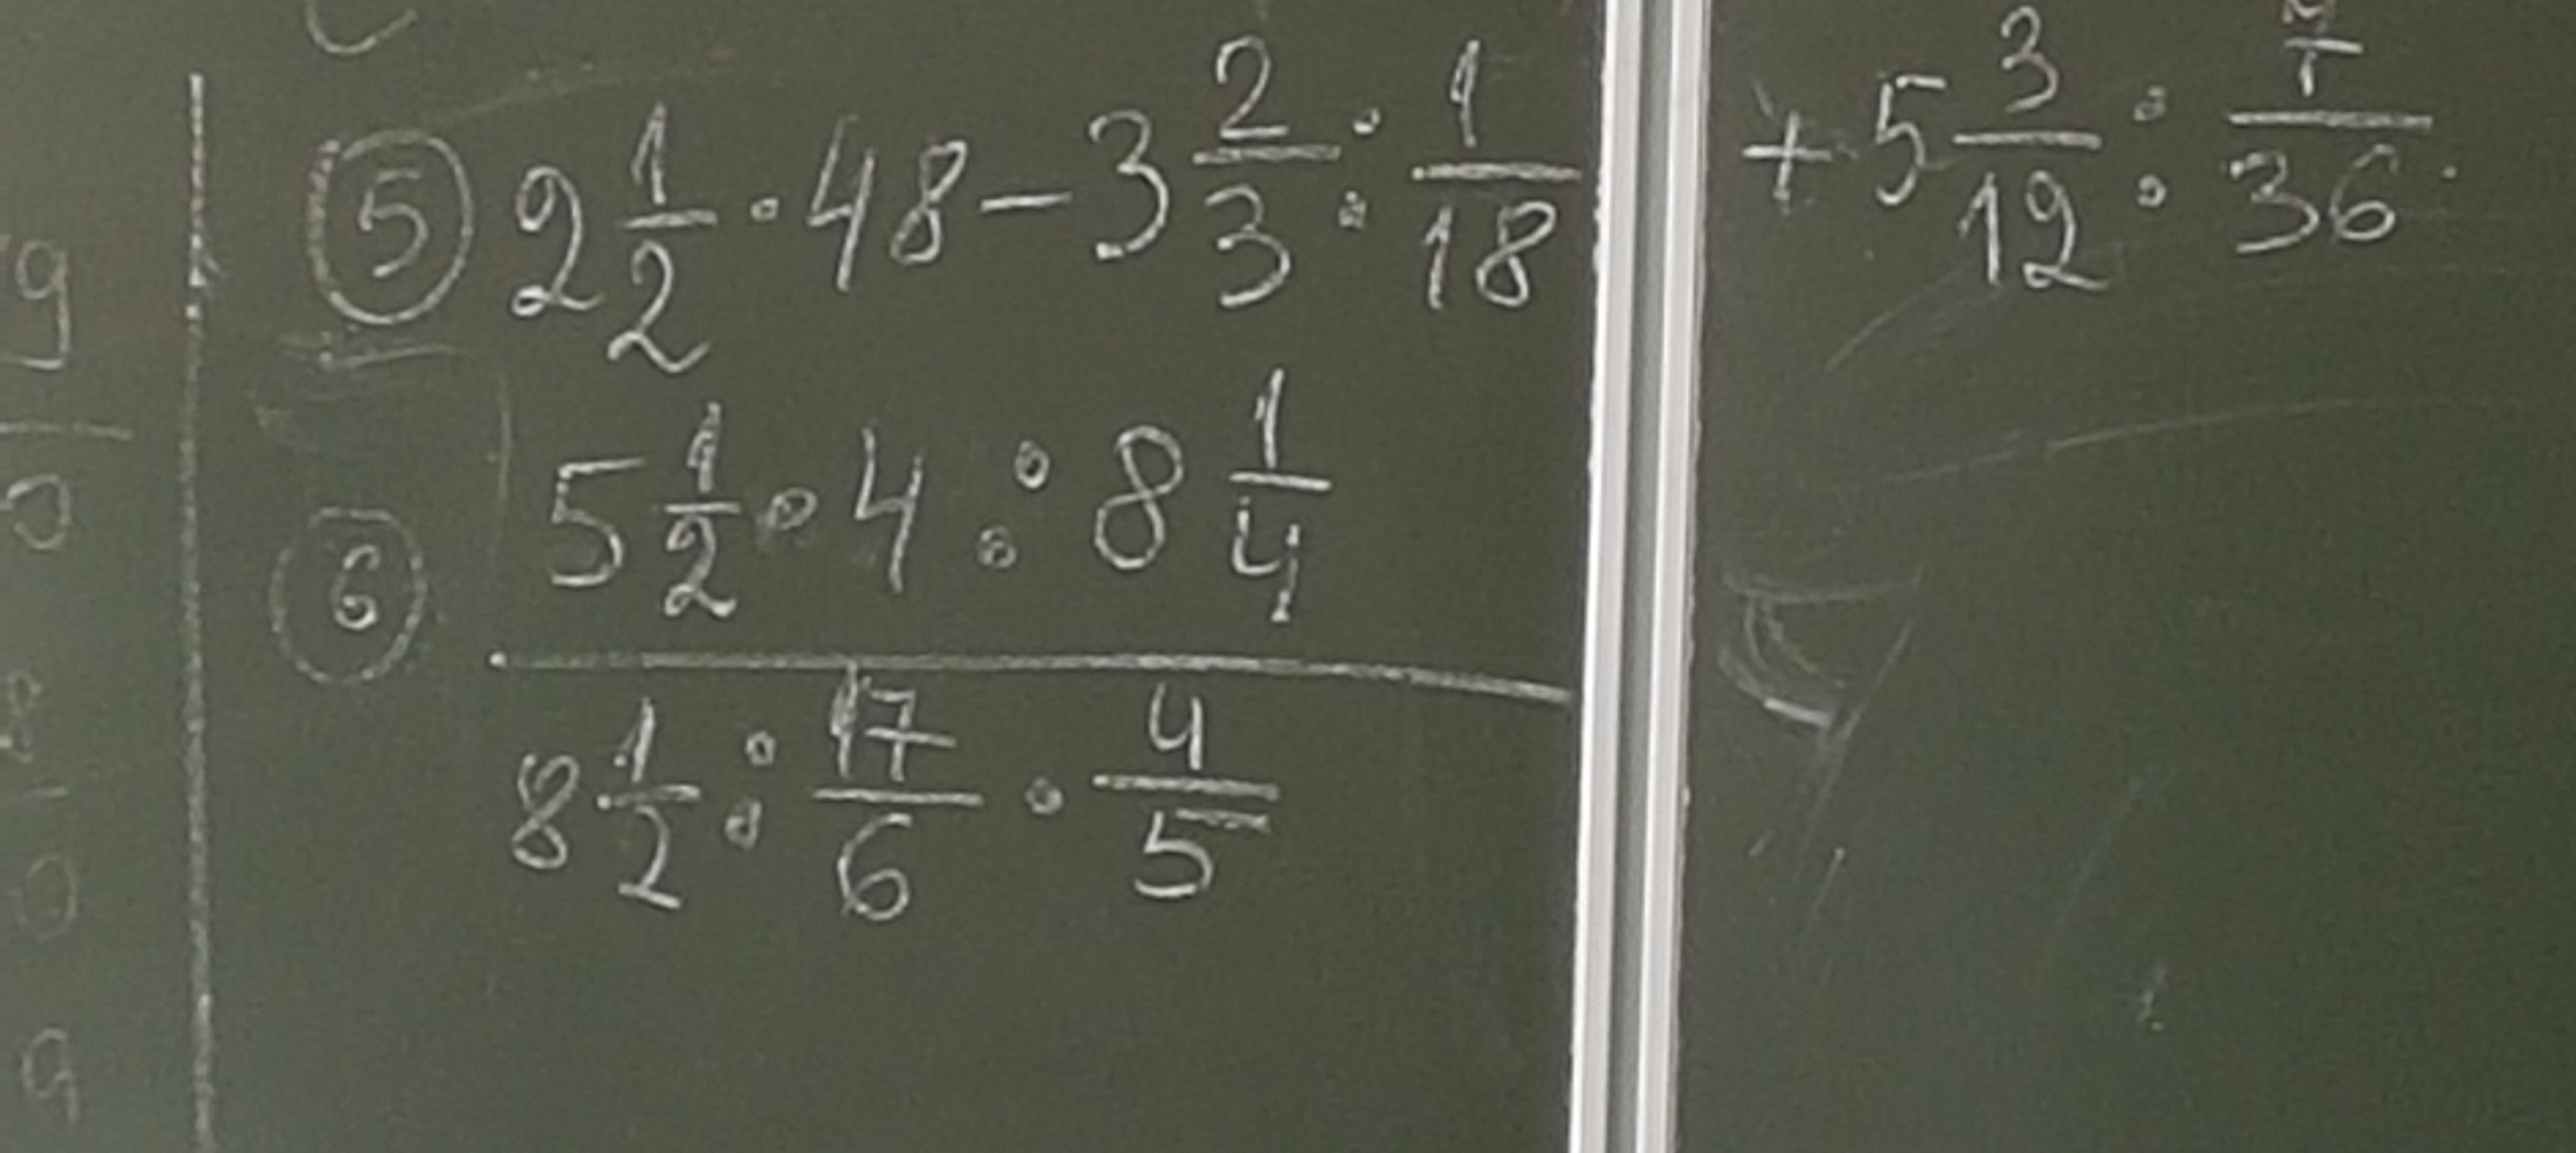 ⑤ 2 1/2 · 48 − 3 2/3 : 1/18 + 5 3/12 : 7/36
⑥ (5 1/2 · 4 : 8 1/4) / (8 1/2 : 17/6 · 4/5)